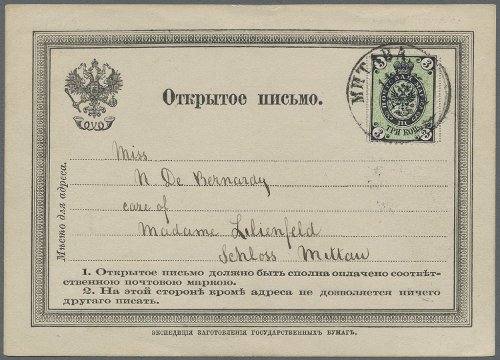 МИТАВА
3 3
ПОЧТОВАЯ МАРКА
ТРИ КОП.
3 3
Открытое письмо.
Мѣсто для адреса.
Miss
N De Bernardy
care of
Madame Lilienfeld
Schloss Mittau
1. Открытое письмо должно быть сполна оплачено соотвѣт-
ственною почтовою маркою.
2. На этой сторонѣ кромѣ адреса не дозволяется ничего
другаго писать.
ЭКСПЕДИЦІЯ ЗАГОТОВЛЕНІЯ ГОСУДАРСТВЕННЫХЪ БУМАГЪ.